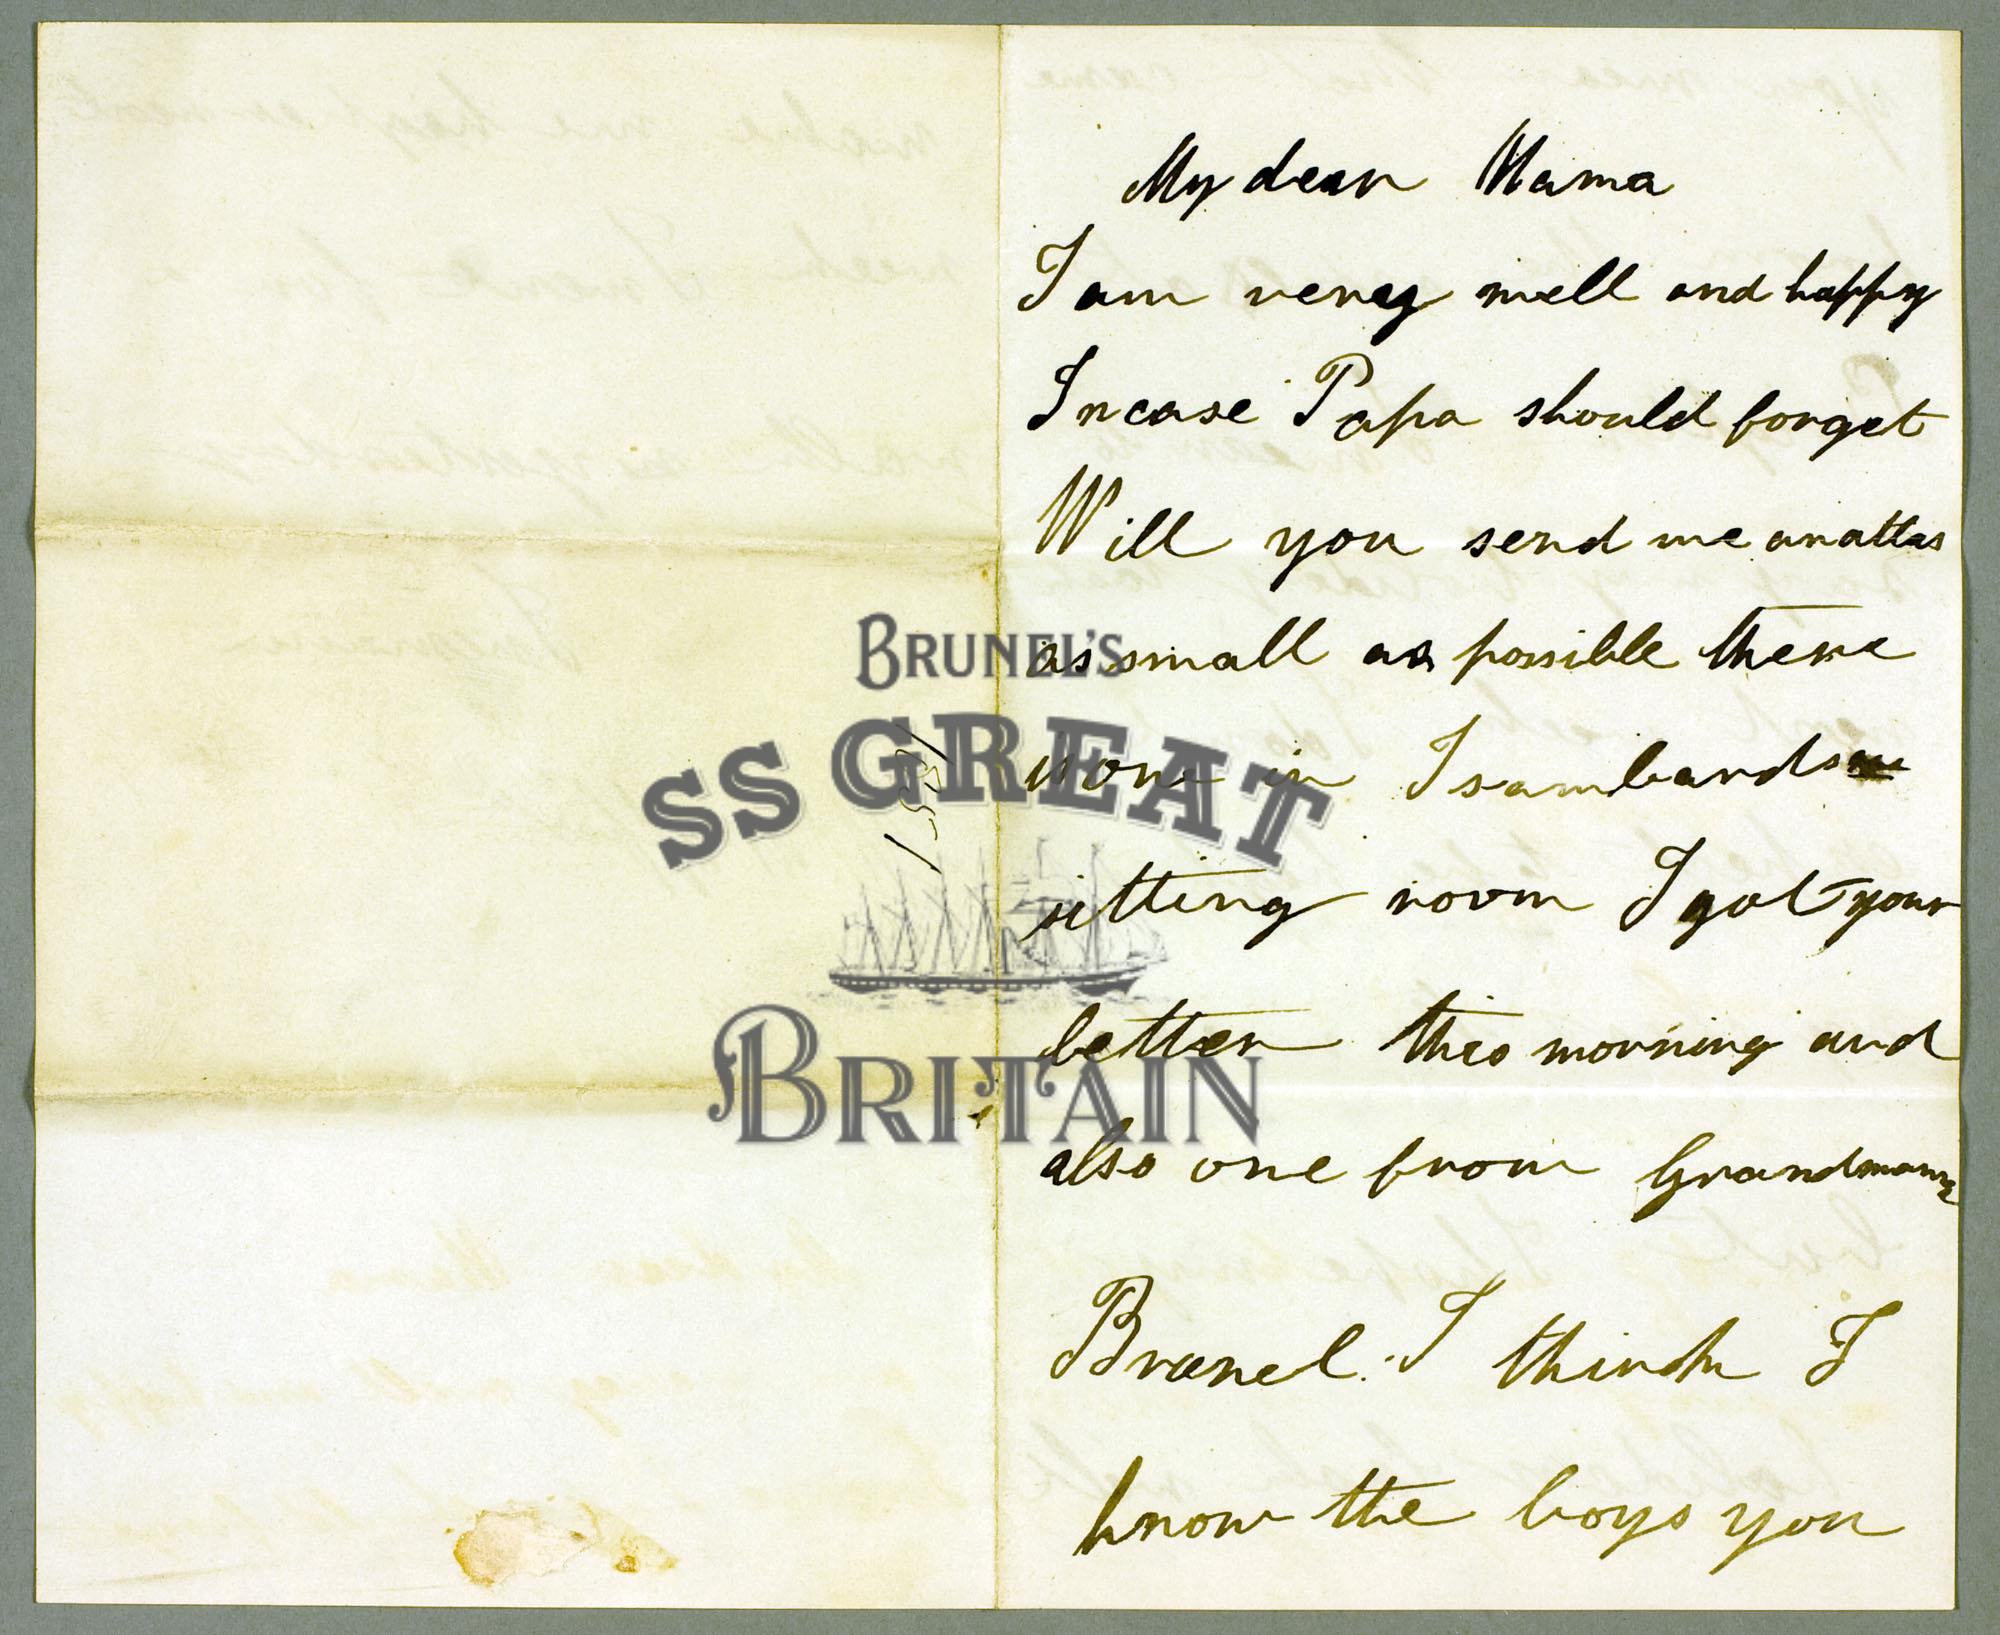 My dear Mama
I am very well and happy
Incase Papa should forget
Will you send me an attlas
as small as possible there
is one in Isambards
sitting room I got your
letter this morning and
also one from Grandmama
Brunel. I think I
know the boys you
1851
BRUNEL'S
SS GREAT
BRITAIN